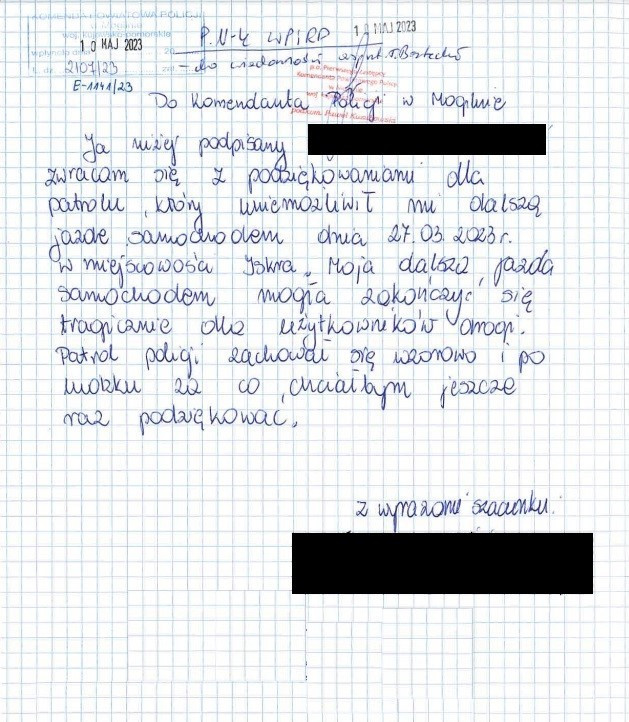 KOMENDA POWIATOWA POLICJI
w Mogilnie
woj. kujawsko-pomorskie
10 MAJ 2023
wpłynęło dnia 20
L. dz. 2107/23 zał.
E-1141/23
P. N-K WPiRD 11 MAJ 2023
- do wiadomości
Komendanta Powiatowego Policji
Do Komendanta Policji w Mogilnie
Ja niżej podpisany
zwracam się z podziękowaniami dla
patrolu, który uniemożliwił mi dalszą
jazdę samochodem dnia 27.03.2023r.
w miejscowości Iskra. Moja dalsza jazda
samochodem mogła zakończyć się
tragicznie dla użytkowników drogi.
Patrol policji zachował się wzorowo i po
ludzku za co chciałbym jeszcze
raz podziękować.
z wyrazami szacunku.